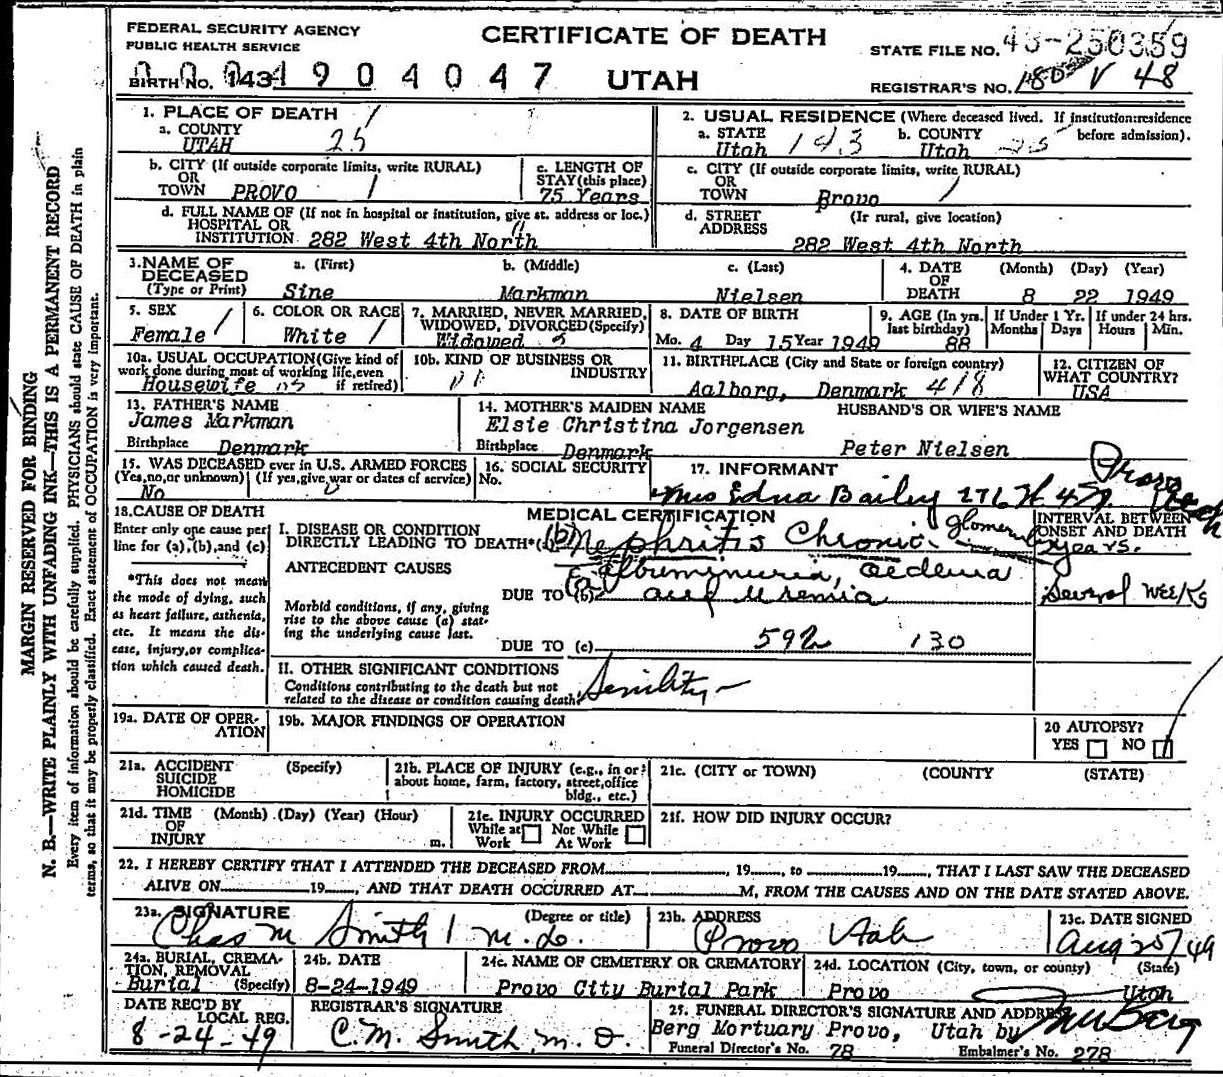 FEDERAL SECURITY AGENCY
PUBLIC HEALTH SERVICE
CERTIFICATE OF DEATH
STATE FILE NO. 49-250359
BIRTH NO. 143 1904047
UTAH
REGISTRAR'S NO. 180 V 48
MARGIN RESERVED FOR BINDING
N. B.—WRITE PLAINLY WITH UNFADING INK—THIS IS A PERMANENT RECORD
Every item of information should be carefully supplied. PHYSICIANS should state CAUSE OF DEATH in plain
terms, so that it may be properly classified. Exact statement of OCCUPATION is very important.
1. PLACE OF DEATH
a. COUNTY
UTAH 25
2. USUAL RESIDENCE (Where deceased lived. If institution:residence
before admission).
a. STATE b. COUNTY
Utah 143 Utah 25
b. CITY (If outside corporate limits, write RURAL)
OR
TOWN PROVO
c. LENGTH OF
STAY(this place)
75 Years
c. CITY (If outside corporate limits, write RURAL)
OR
TOWN Provo
d. FULL NAME OF (If not in hospital or institution, give st. address or loc.)
HOSPITAL OR
INSTITUTION 282 West 4th North
d. STREET (Ir rural, give location)
ADDRESS
282 West 4th North
3. NAME OF
DECEASED
(Type or Print)
a. (First) b. (Middle) c. (Last)
Sine Markman Nielsen
4. DATE
OF
DEATH
(Month) (Day) (Year)
8 22 1949
5. SEX
Female
6. COLOR OR RACE
White
7. MARRIED, NEVER MARRIED,
WIDOWED, DIVORCED(Specify)
Widowed
8. DATE OF BIRTH
Mo. 4 Day 15 Year 1949
9. AGE (In yrs.
last birthday)
88
If Under 1 Yr.
Months Days
If under 24 hrs.
Hours Min.
10a. USUAL OCCUPATION(Give kind of
work done during most of working life,even
if retired)
Housewife
10b. KIND OF BUSINESS OR
INDUSTRY
11. BIRTHPLACE (City and State or foreign country)
Aalborg, Denmark 418
12. CITIZEN OF
WHAT COUNTRY?
USA
13. FATHER'S NAME
James Markman
Birthplace Denmark
14. MOTHER'S MAIDEN NAME
Elsie Christina Jorgensen
Birthplace Denmark
HUSBAND'S OR WIFE'S NAME
Peter Nielsen
15. WAS DECEASED ever in U.S. ARMED FORCES
(Yes,no,or unknown) (If yes,give war or dates of service)
No
16. SOCIAL SECURITY
No.
17. INFORMANT
Mrs Edna Bailey 276 W 4 N. Provo Utah
18. CAUSE OF DEATH
Enter only one cause per
line for (a),(b),and (c)
*This does not mean
the mode of dying, such
as heart failure, asthenia,
etc. It means the dis-
ease, injury,or complica-
tion which caused death.
MEDICAL CERTIFICATION
I. DISEASE OR CONDITION
DIRECTLY LEADING TO DEATH*(a) (b) Nephritis Chronic
INTERVAL BETWEEN
ONSET AND DEATH
years.
ANTECEDENT CAUSES
Morbid conditions, if any, giving
rise to the above cause (a) stat-
ing the underlying cause last.
DUE TO (b) (a) Albuminuria, oedema
and Uremia
Several WEEKS
DUE TO (c) 592 130
II. OTHER SIGNIFICANT CONDITIONS
Conditions contributing to the death but not
related to the disease or condition causing death.
Senility
19a. DATE OF OPER-
ATION
19b. MAJOR FINDINGS OF OPERATION
20 AUTOPSY?
YES NO
21a. ACCIDENT
SUICIDE
HOMICIDE
(Specify)
21b. PLACE OF INJURY (e.g., in or
about home, farm, factory, street,office
bldg., etc.)
21c. (CITY or TOWN) (COUNTY) (STATE)
21d. TIME (Month) (Day) (Year) (Hour)
OF
INJURY m.
21e. INJURY OCCURRED
While at Not While
Work At Work
21f. HOW DID INJURY OCCUR?
22. I HEREBY CERTIFY THAT I ATTENDED THE DECEASED FROM , 19 , to 19 , THAT I LAST SAW THE DECEASED
ALIVE ON 19 , AND THAT DEATH OCCURRED AT M, FROM THE CAUSES AND ON THE DATE STATED ABOVE.
23a. SIGNATURE (Degree or title)
Chas M Smith M.D.
23b. ADDRESS
Provo Utah
23c. DATE SIGNED
Aug 25/49
24a. BURIAL, CREMA-
TION, REMOVAL
Burial (Specify)
24b. DATE
8-24-1949
24c. NAME OF CEMETERY OR CREMATORY
Provo City Burial Park
24d. LOCATION (City, town, or county) (State)
Provo Utah
DATE REC'D BY
LOCAL REG.
8-24-49
REGISTRAR'S SIGNATURE
C.M. Smith, M.D.
25. FUNERAL DIRECTOR'S SIGNATURE AND ADDRESS
Berg Mortuary Provo, Utah by
Funeral Director's No. 78 Embalmer's No. 278